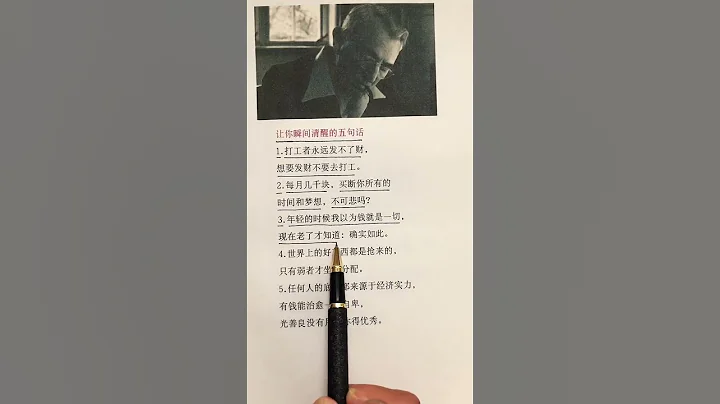 让你瞬间清醒的五句话
1.打工者永远发不了财，
想要发财不要去打工。
2.每月几千块，买断你所有的
时间和梦想，不可悲吗？
3.年轻的时候我以为钱就是一切，
现在老了才知道：确实如此。
4.世界上的好西都是抢来的，
只有弱者才坐分配。
5.任何人的底都来源于经济实力，
有钱能治愈一自卑，
光善良没有得优秀。